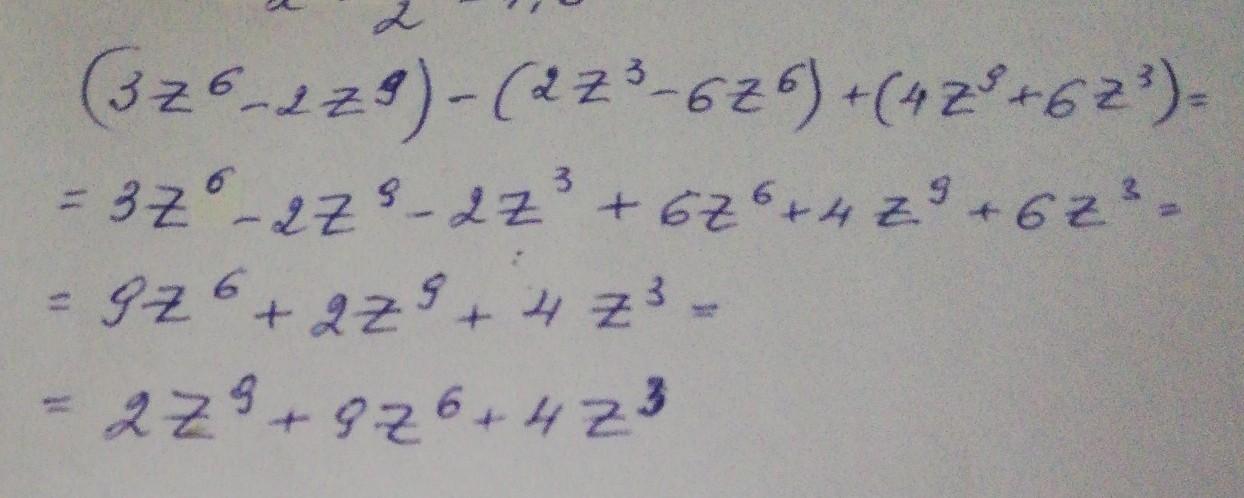 (3z⁶ - 2z⁹) - (2z³ - 6z⁶) + (4z⁹ + 6z³) =
= 3z⁶ - 2z⁹ - 2z³ + 6z⁶ + 4z⁹ + 6z³ =
= 9z⁶ + 2z⁹ + 4z³ =
= 2z⁹ + 9z⁶ + 4z³